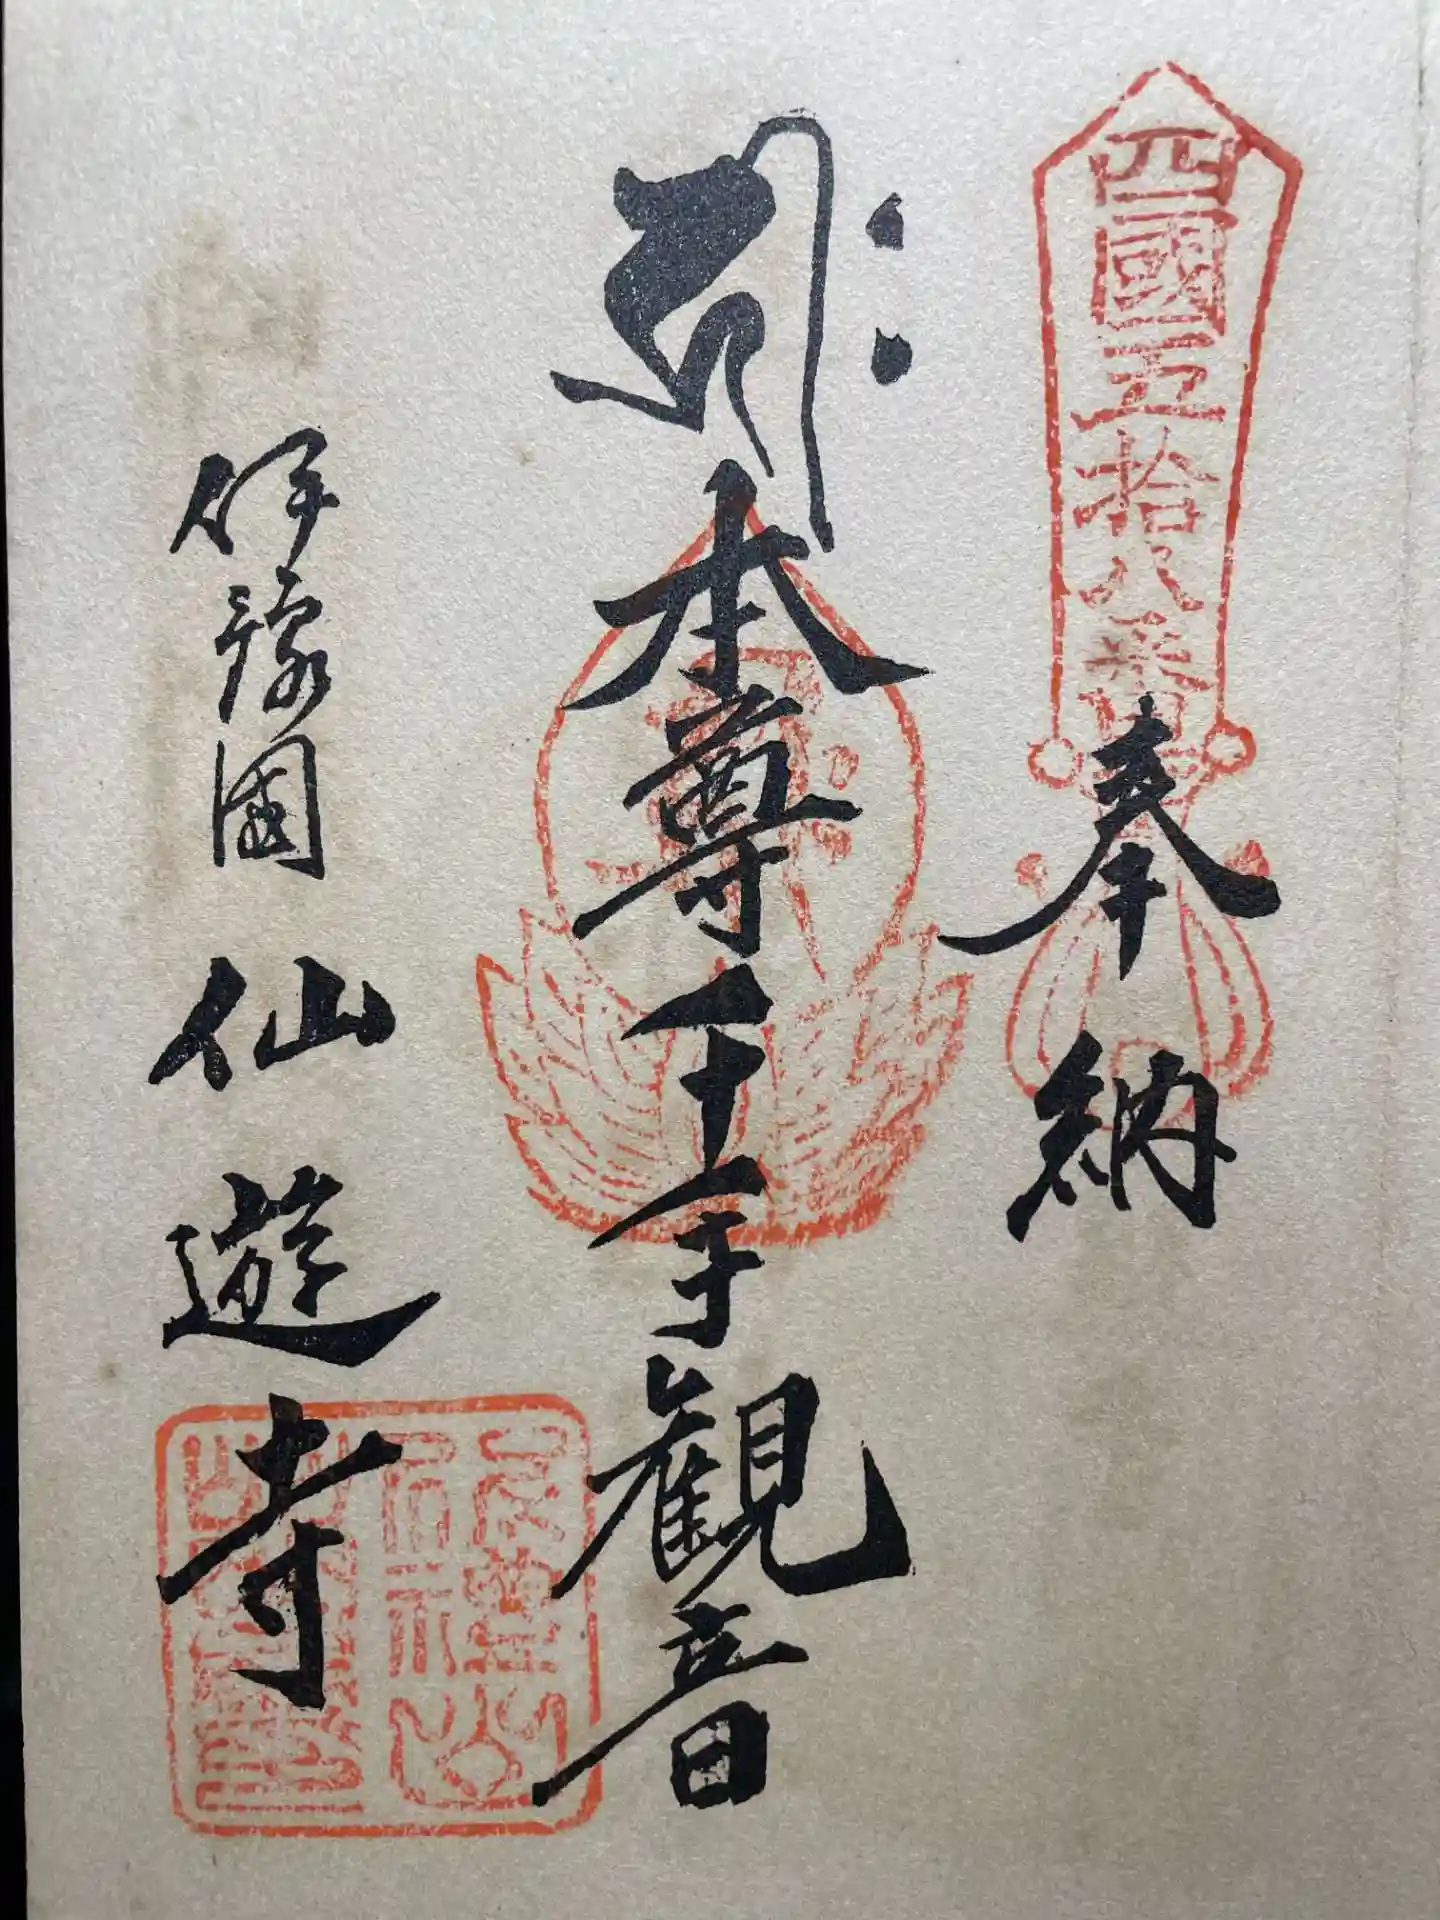 四國五拾八番
奉納
本尊千手観音
伊豫國 仙遊寺